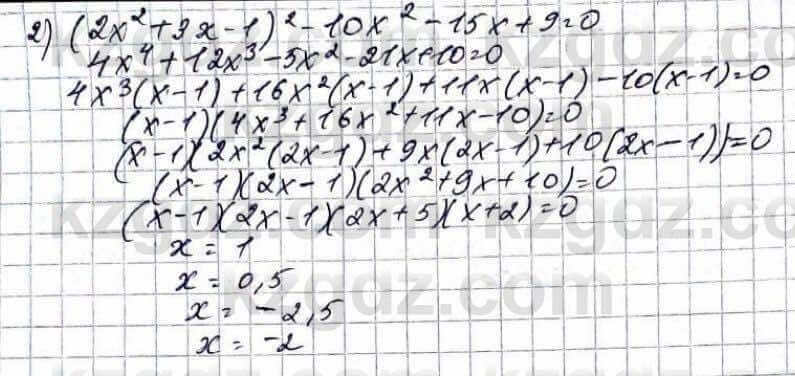 2) (2x² + 3x - 1)² - 10x² - 15x + 9 = 0
4x⁴ + 12x³ - 5x² - 21x + 10 = 0
4x³(x - 1) + 16x²(x - 1) + 11x(x - 1) - 10(x - 1) = 0
(x - 1)(4x³ + 16x² + 11x - 10) = 0
(x - 1)(2x²(2x - 1) + 9x(2x - 1) + 10(2x - 1)) = 0
(x - 1)(2x - 1)(2x² + 9x + 10) = 0
(x - 1)(2x - 1)(2x + 5)(x + 2) = 0
x = 1
x = 0,5
x = -2,5
x = -2
kzgdz.com